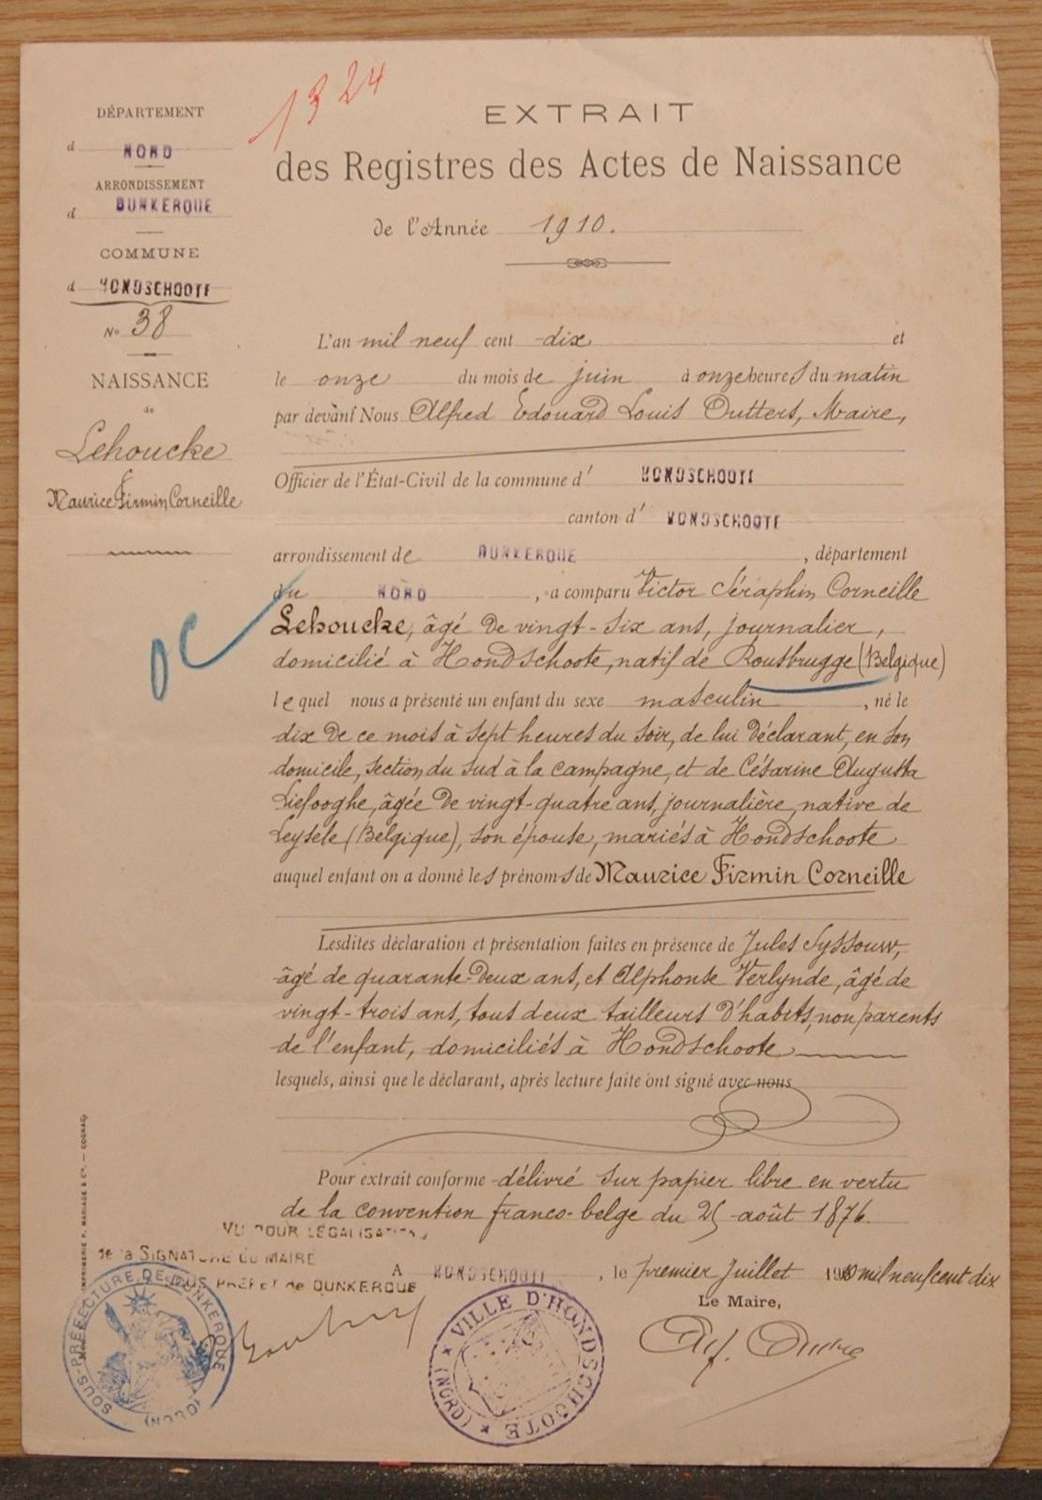 1324
DÉPARTEMENT
d NORD
ARRONDISSEMENT
d DUNKERQUE
COMMUNE
d' HONDSCHOOTE
No 38
NAISSANCE
de
Lehoucke
Maurice Firmin Corneille
EXTRAIT
des Registres des Actes de Naissance
de l'Année 1910.
L'an mil neuf cent dix et
le onze du mois de juin à onze heures du matin
par devant Nous Alfred Edouard Louis Outters, Maire,
Officier de l'État-Civil de la commune d' HONDSCHOOTE
canton d' HONDSCHOOTE
arrondissement de DUNKERQUE, département
du NORD, a comparu Victor Séraphin Corneille
Lehoucke, âgé de vingt-six ans, journalier,
domicilié à Hondschoote, natif de Rousbrugge (Belgique)
lequel nous a présenté un enfant du sexe masculin, né le
dix de ce mois à sept heures du soir, de lui déclarant, en son
domicile, section du sud à la campagne, et de Césarine Augusta
Liefooghe, âgée de vingt-quatre ans, journalière, native de
Leysele (Belgique), son épouse, mariés à Hondschoote
auquel enfant on a donné les prénoms de Maurice Firmin Corneille
Lesdites déclaration et présentation faites en présence de Jules Syssouw,
âgé de quarante-deux ans, et Alphonse Verlynde, âgé de
vingt-trois ans, tous deux tailleurs d'habits, non parents
de l'enfant, domiciliés à Hondschoote
lesquels, ainsi que le déclarant, après lecture faite ont signé avec nous
Pour extrait conforme délivré sur papier libre en vertu
de la convention franco-belge du 25 août 1876.
VU POUR LÉGALISATION
de la SIGNATURE DU MAIRE
SOUS PRÉFET de DUNKERQUE
A HONDSCHOOTE, le premier Juillet 1910 mil neuf cent dix
Le Maire,
SOUS-PRÉFECTURE DE DUNKERQUE (NORD)
VILLE D'HONDSCHOOTE (NORD)
IMPRIMERIE P. MARIAGE & Cie. — COGNAC